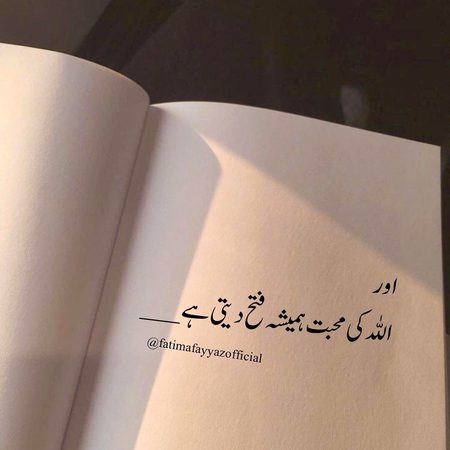 اور
اللہ کی محبت ہمیشہ فتح دیتی ہے____
@fatimafayyazofficial